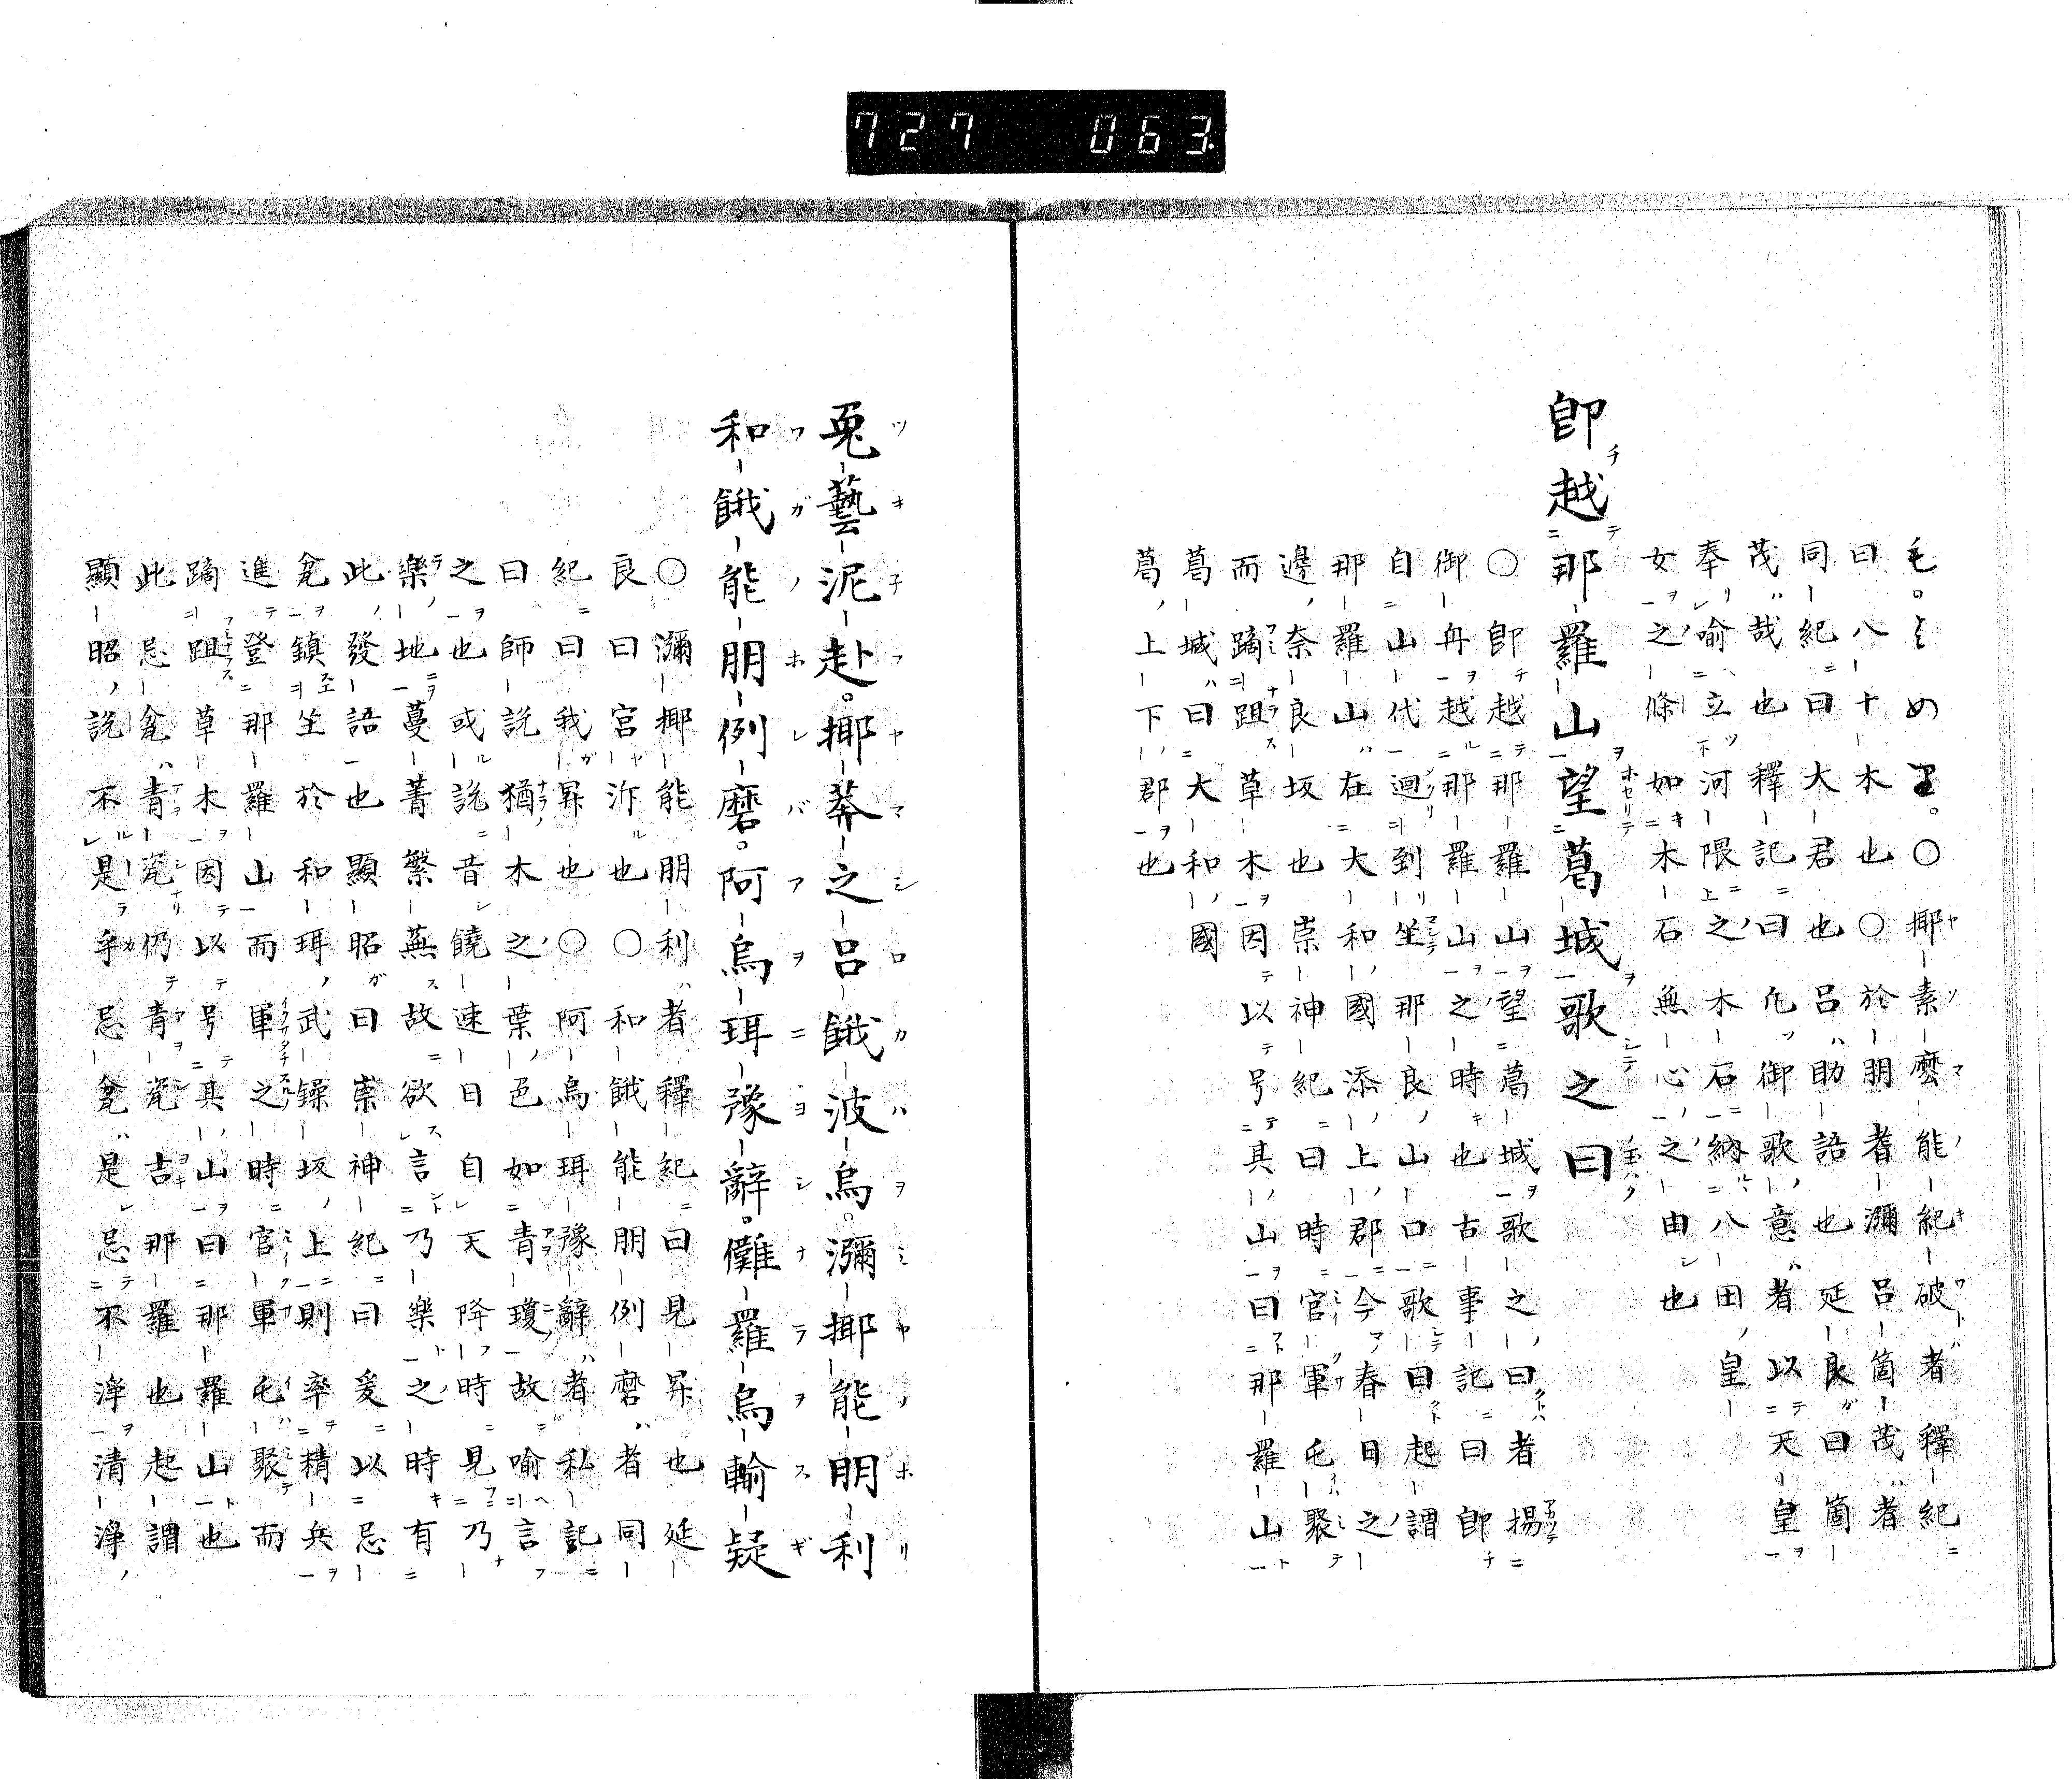 727 063.
毛。とめ里。〇揶素麼能紀破者釋紀
曰八十木也〇於朋耆瀰呂箇茂者
同紀曰大君也呂助語也延良曰箇
茂哉也釋記曰凡御歌意者以天皇
奉喩立河隈之木石納八田皇
女之條如木石無心之由也
即越那羅山望葛城歌之曰
〇即越那羅山望葛城歌之曰者揚
御舟越那羅山之時也古事記曰即
自山代迴到坐那良山口歌曰起謂
那羅山在大和國添上郡今春日之
邊奈良坂也崇神紀曰時官軍屯聚
而蹢跙草木因以号其山曰那羅山
葛城曰大和國
葛上下郡也
菟藝泥赴。揶莽之呂餓波烏。瀰揶能朋利
和餓能朋例磨。阿烏珥豫辭。儺羅烏輸疑
〇瀰揶能朋利者釋紀曰見昇也延
良曰宮泝也〇和餓能朋例磨者同
紀曰我昇也〇阿烏珥豫辭者私記
曰師説猶木之葉色如青瓊故喩言
之也或説昔饒速日自天降時見乃
樂地蔓菁繁蕪故欲言乃樂之時有
此發語也顯昭曰崇神紀曰爰以忌
瓮鎮坐於和珥武鐰坂上則率精兵
進登那羅山而軍之時官軍屯聚而
蹢跙草木因以号其山曰那羅山也
此忌瓮青瓷仍青瓷吉那羅也起謂
顯昭説不是乎忌瓮是忌不淨清淨